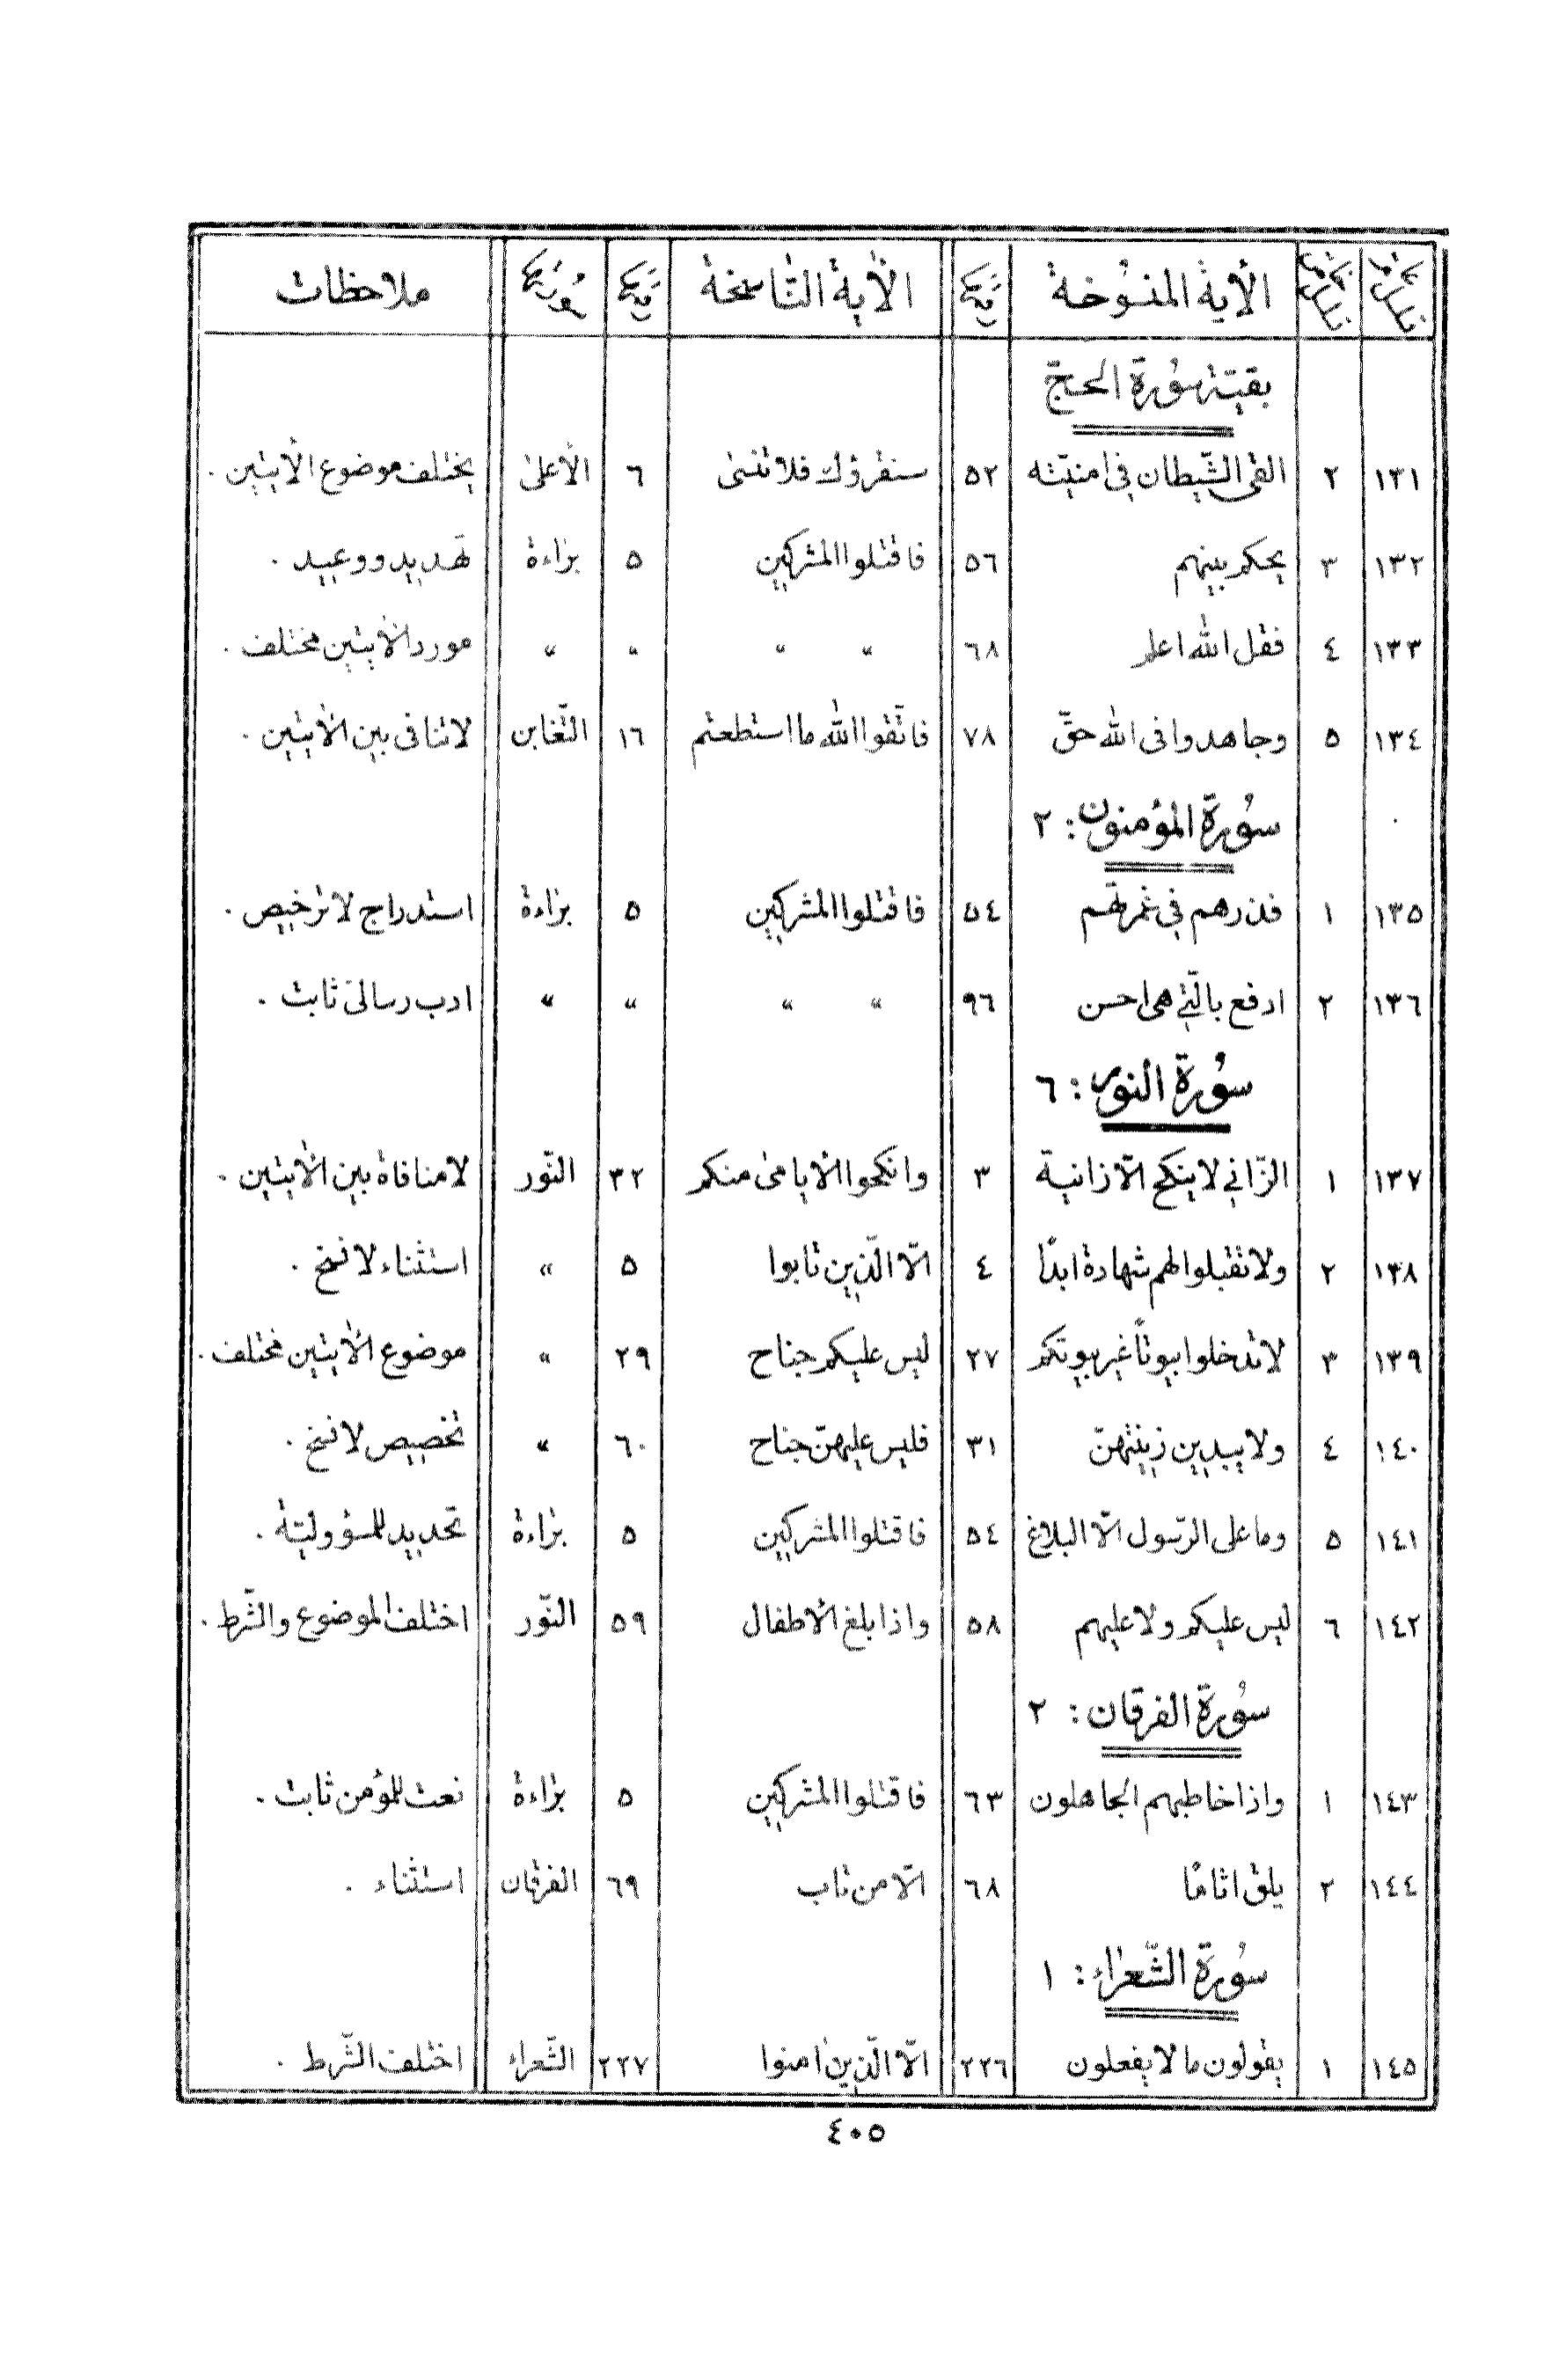 الآية المنسوخة الآية الناسخة ملاحظات
بقيّة سورة الحجّ
١٣١ ٢ القى الشّيطان في امنيّته ٥٢ سنقرؤك فلا تنسى ٦ الأعلى يختلف موضوع الآيتين .
١٣٢ ٣ يحكم بينهم ٥٦ فاقتلوا المشركين ٥ براءة تهديد ووعيد .
١٣٣ ٤ فقل الله اعلم ٦٨ " " " " مورد الآيتين مختلف .
١٣٤ ٥ وجاهدوا فى الله حقّ ٧٨ فاتّقوا الله ما استطعتم ١٦ التّغابن لا تنافى بين الآيتين .
سورة المؤمنون : ٢
١٣٥ ١ فذرهم في غمرتهم ٥٤ فاقتلوا المشركين ٥ براءة استدراج لا ترخيص .
١٣٦ ٢ ادفع بالّتي هى احسن ٩٦ " " " " ادب رسالىّ ثابت .
سورة النور : ٦
١٣٧ ١ الزّاني لا ينكح الّا زانية ٣ وانكحوا الأيامى منكم ٣٢ النّور لا منافاة بين الآيتين .
١٣٨ ٢ ولا تقبلوا لهم شهادة ابدًا ٤ الّا الّذين تابوا ٥ " استثناء لا نسخ .
١٣٩ ٣ لا تدخلوا بيوتاً غير بيوتكم ٢٧ ليس عليكم جناح ٢٩ " موضوع الآيتين مختلف .
١٤٠ ٤ ولا يبدين زينتهنّ ٣١ فليس عليهنّ جناح ٦٠ " تخصيص لا نسخ .
١٤١ ٥ وما على الرّسول الّا البلاغ ٥٤ فاقتلوا المشركين ٥ براءة تحديد للمسؤوليّة .
١٤٢ ٦ ليس عليكم ولا عليهم ٥٨ واذا بلغ الأطفال ٥٩ النّور اختلف الموضوع والشّرط .
سورة الفرقان : ٢
١٤٣ ١ واذا خاطبهم الجاهلون ٦٣ فاقتلوا المشركين ٥ براءة نعت للمؤمن ثابت .
١٤٤ ٢ يلق اثامًا ٦٨ الّا من تاب ٦٩ الفرقان استثناء .
سورة الشّعراء : ١
١٤٥ ١ يقولون ما لا يفعلون ٢٢٦ الّا الّذين آمنوا ٢٢٧ الشّعراء اختلف الشّرط .
٤٠٥